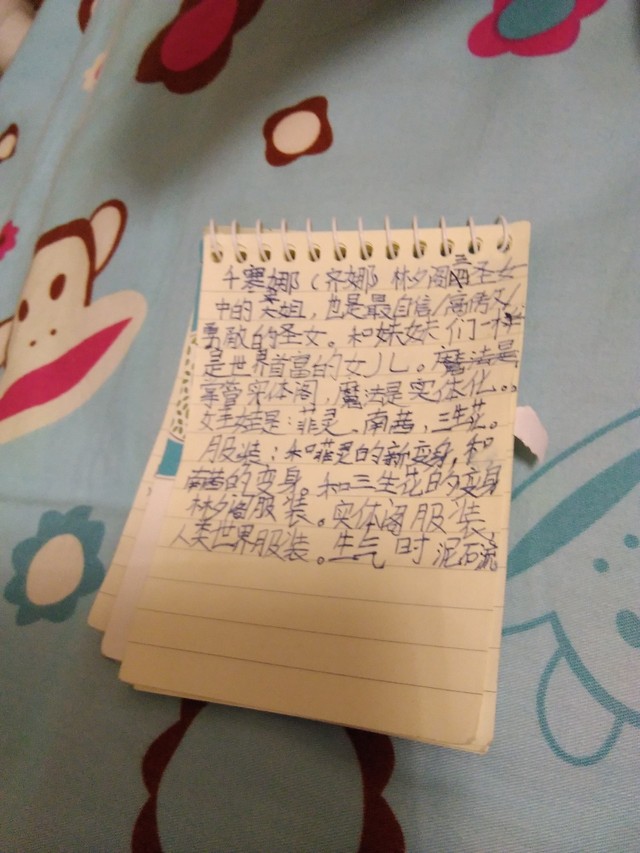 千寒娜(齐娜)林夕阁三圣女
中的美姐，也是最自信/高傲又
勇敢的圣女。和妹妹们一样
是世界首富的女儿。魔法是
掌管实体阁，魔法是实体化。
娃娃是：菲灵、南茜，三生花。
服装：和菲灵的新变身，和
南茜的变身。和三生花的变身
林夕阁服装。实体阁服装、
人类世界服装。生气时泥石流